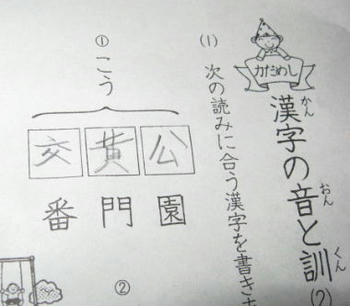 力だめし
漢字の音と訓(2)
かん
おん
くん
(1) 次の読みに合う漢字を書きま
① こう
公園
黄門
交番
②